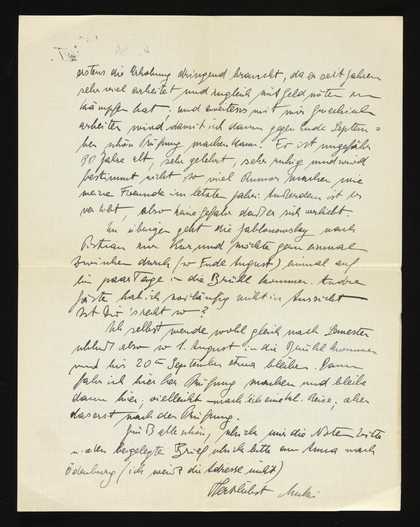 erstens die Erholung dringend braucht, da er seit Jahren
sehr viel arbeitet und zugleich mit Geldnöten zu
kämpfen hat, und zweitens mit mir Griechisch
arbeiten wird, damit ich dann gegen Ende Septem=
ber schon Prüfung machen kann. Er ist ungefähr
30 Jahre alt, sehr gelehrt, sehr ruhig und wird
bestimmt nicht so viel Rumor machen wie
meine Freunde im letzten Jahr. Außerdem ist er
verlobt, also keine Gefahr daß er sich verliebt.
Im übrigen geht die Jablonowsky nach
und möchte gern einmal
zwischen durch (so Ende August) einmal auf
ein paar Tage in die Brühl kommen. Andre
Gäste hab ich vorläufig nicht in Aussicht
Ist Dir's recht so?
Ich selbst werde wohl gleich nach Semester
also so 1. August in die Brühl kommen
und bis 20ten September etwa bleiben. Dann
fahr ich hierher Prüfung machen und bleib
dann hier, vielleicht mach ich eine kl. Reise, aber
das erst nach der Prüfung.
schick mir die Noten bitte
beigelegte Brief schick bitte an Anna nach
Ödenburg (ich weiß die Adresse nicht)
Herzlichst